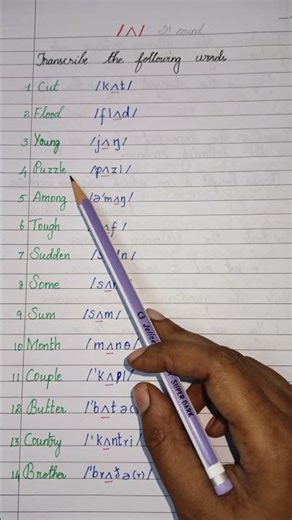 /ʌ/ sound
Transcribe the following words
1 Cut /kʌt/
2 Flood /flʌd/
3 Young /jʌŋ/
4 Puzzle /pʌzl/
5 Among /ə'mʌŋ/
6 Tough ʌf /
7 Sudden /s 'n/
8 Some /sʌ
9 Sum /sʌm/
10 Month /mʌnθ/
11 Couple /'kʌpl/
12 Butter /'bʌtə(r)/
13 Country /'kʌntri/
14 Brother /'brʌðə(r)/
SUPER DARK